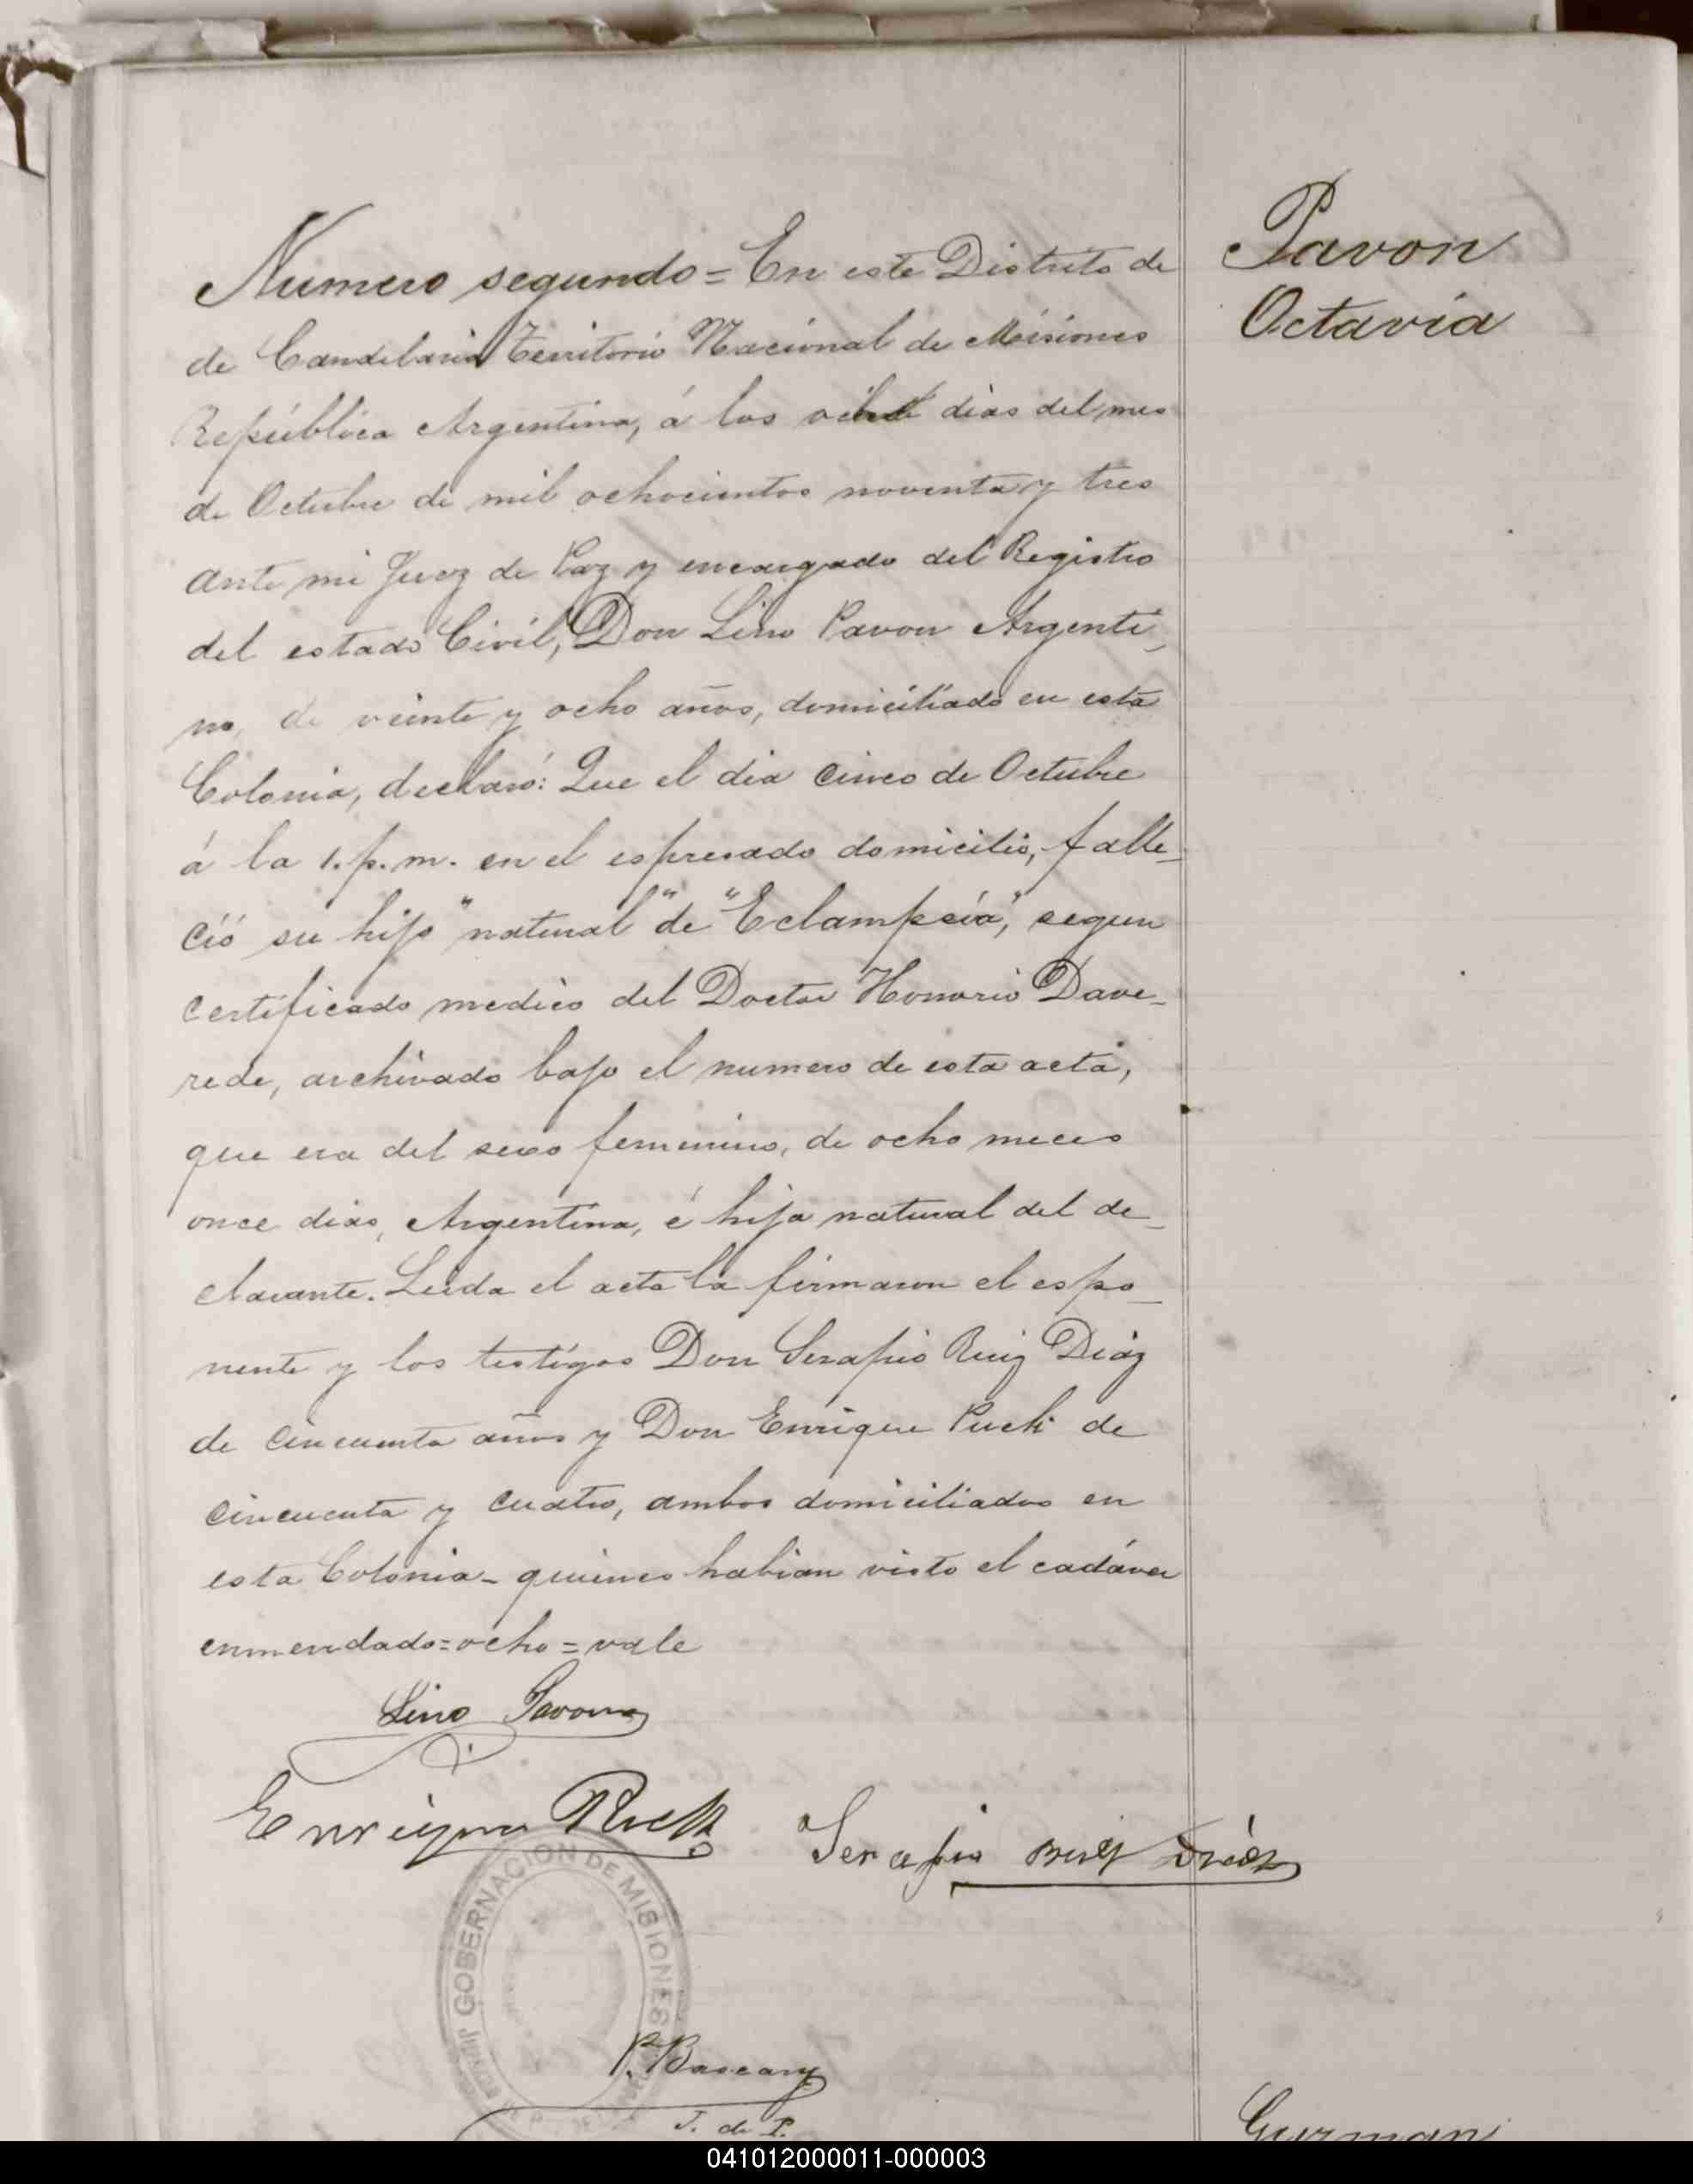 Pavon
Octavia
Numero segundo = En este Distrito de
de Candelaria Territorio Nacional de Misiones
República Argentina, á los ocho dias del mes
de Octubre de mil ochocientos noventa y tres
ante mi Juez de Paz y encargado del Registro
del estado Civil, Don Lino Pavon Argenti-
no, de veinte y ocho años, domiciliado en esta
Colonia, declaró: Que el dia cinco de Octubre
á la 1. p. m. en el espresado domicilio, falle-
ció su hijo "natural" de "Eclampcia", segun
certificado medico del Doctor Honorio Dave-
rede, archivado bajo el numero de esta acta,
que era del sexo femenino, de ocho meces
once dias, Argentina, é hija natural del de-
clarante. Leida el acta la firmaron el espo-
nente y los testigos Don Serapio Ruiz Diaz
de cincuenta años y Don Enrique Puck de
cincuenta y cuatro, ambos domiciliados en
esta Colonia - quienes habian visto el cadáver
enmendado = ocho = vale
Lino Pavon
Enrique
Serapio Ruiz Diaz
GOBERNACION DE MISIONES
J. de P.
Guzman
041012000011-000003